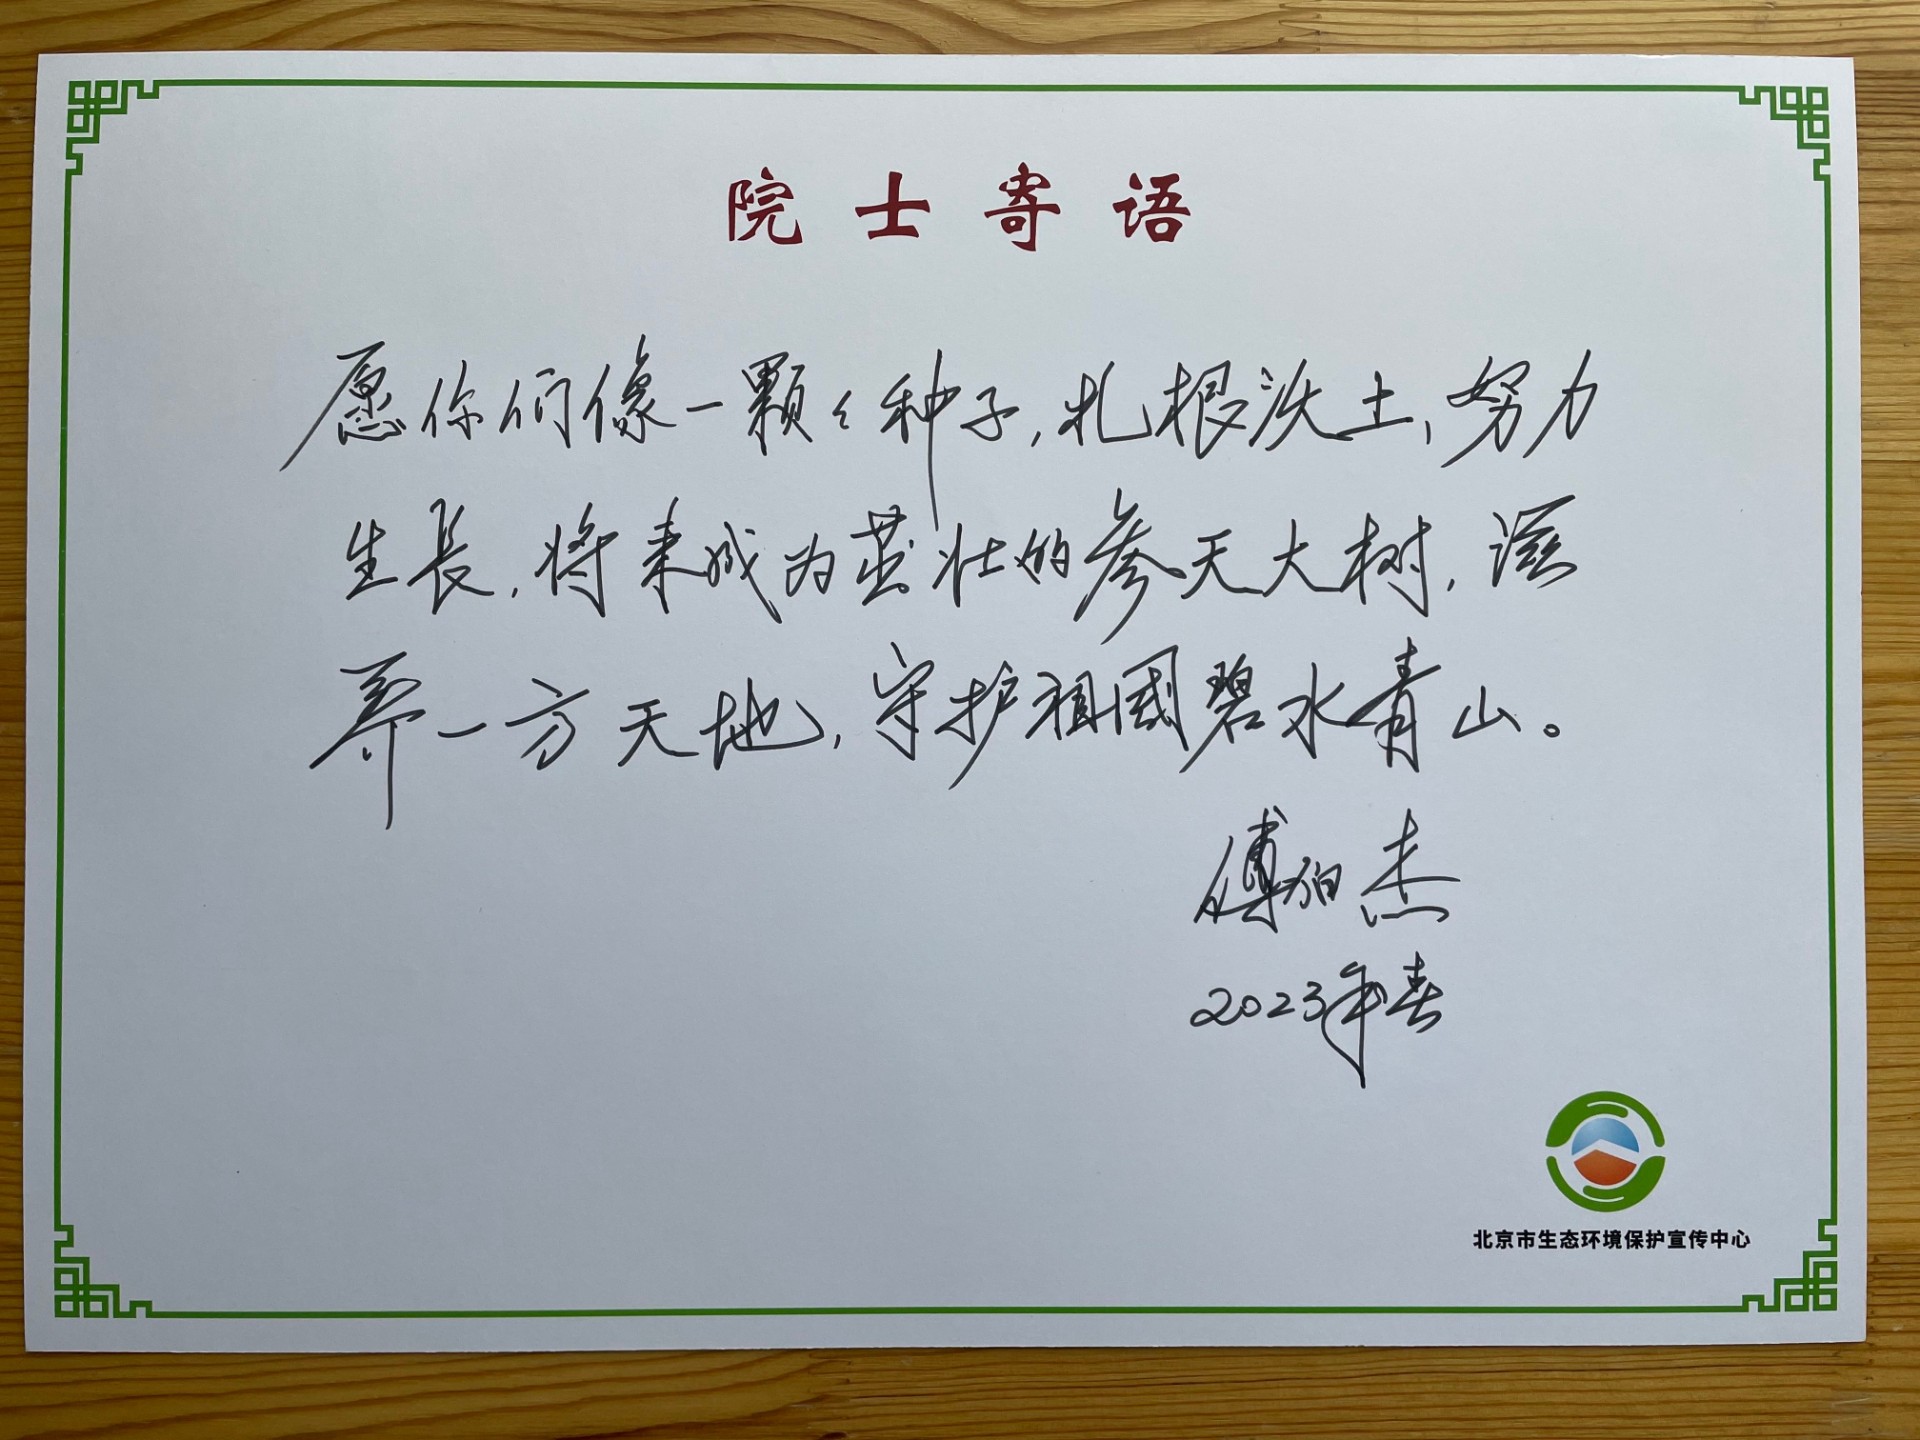 院士寄语
愿你们像一颗々种子,扎根沃土,努力
生長,将来成为茁壮的参天大树,滋
养一方天地,守护祖國碧水青山。
傅伯杰
2023年春
北京市生态环境保护宣传中心